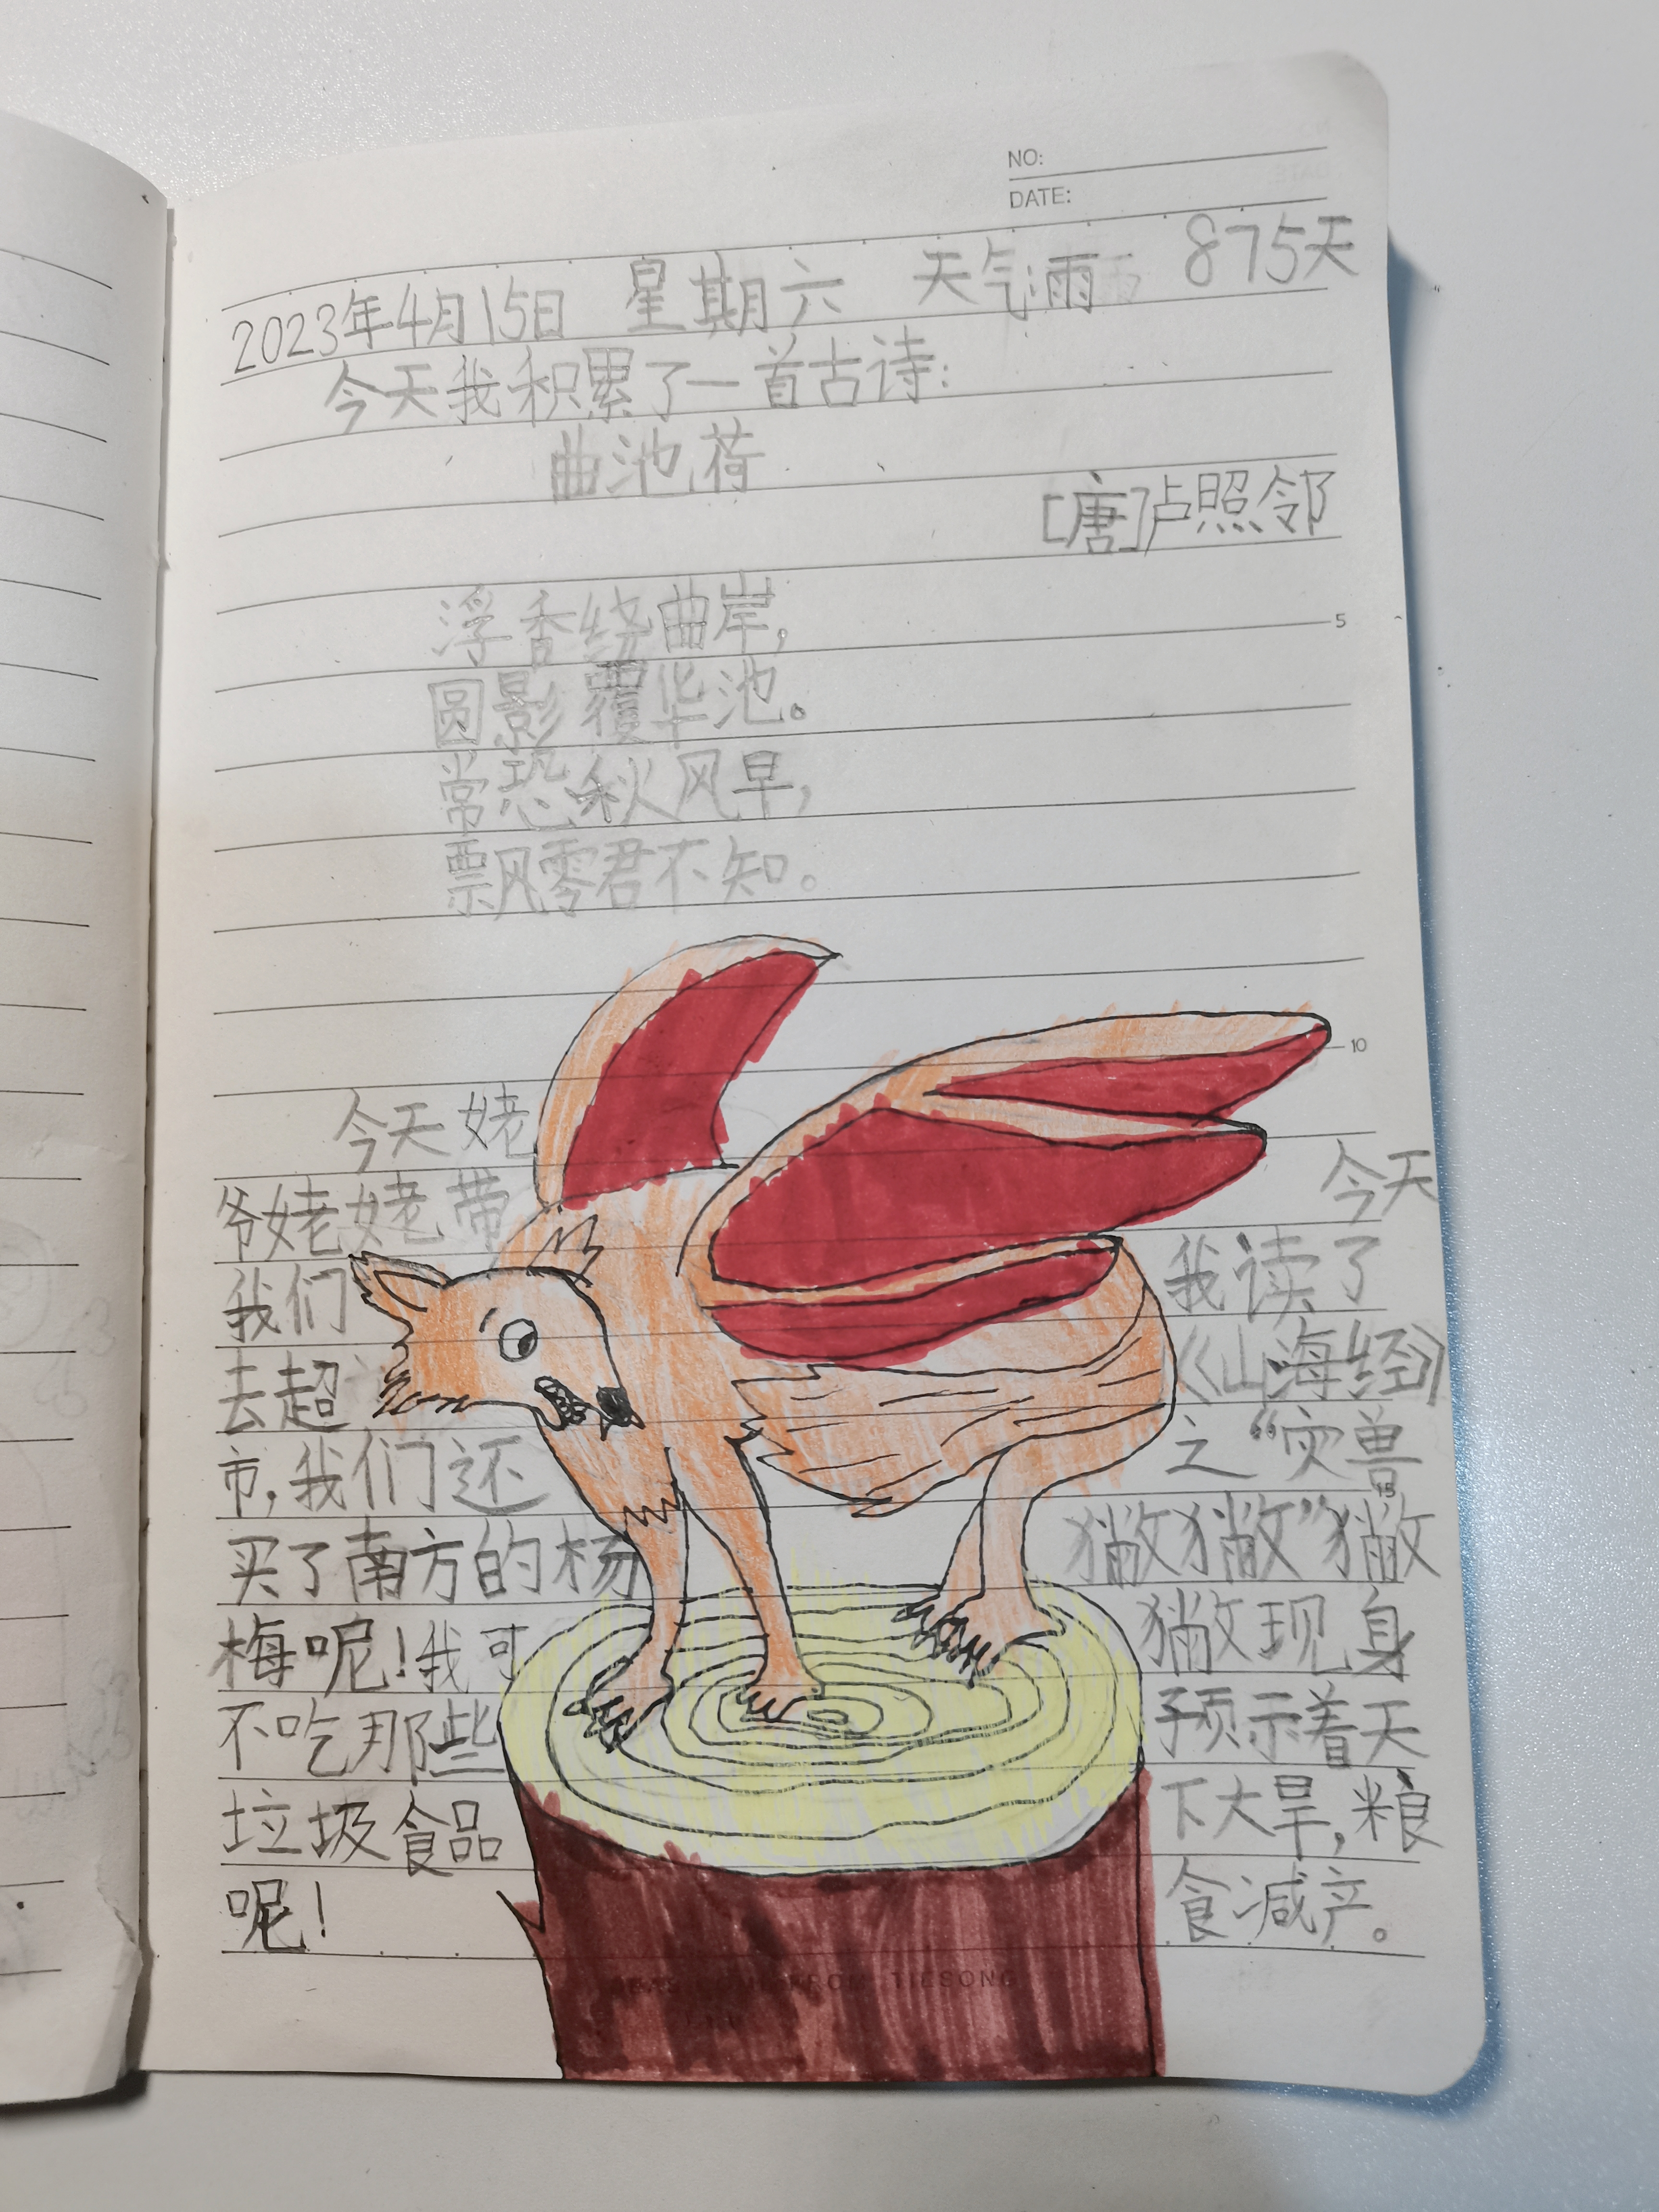 NO:
DATE:
2023年4月15日 星期六 天气:雨 875天
今天我积累了一首古诗:
曲池荷
[唐]卢照邻
浮香绕曲岸,
5
圆影覆华池。
常恐秋风早,
飘零君不知。
10
今天姥
爷姥姥带
我们
去超
市,我们还
买了南方的杨
梅呢!我可
不吃那些
垃圾食品
呢!
今天
我读了
《山海经》
之“灾兽
15
獙獙”獙
獙现身
预示着天
下大旱,粮
食减产。